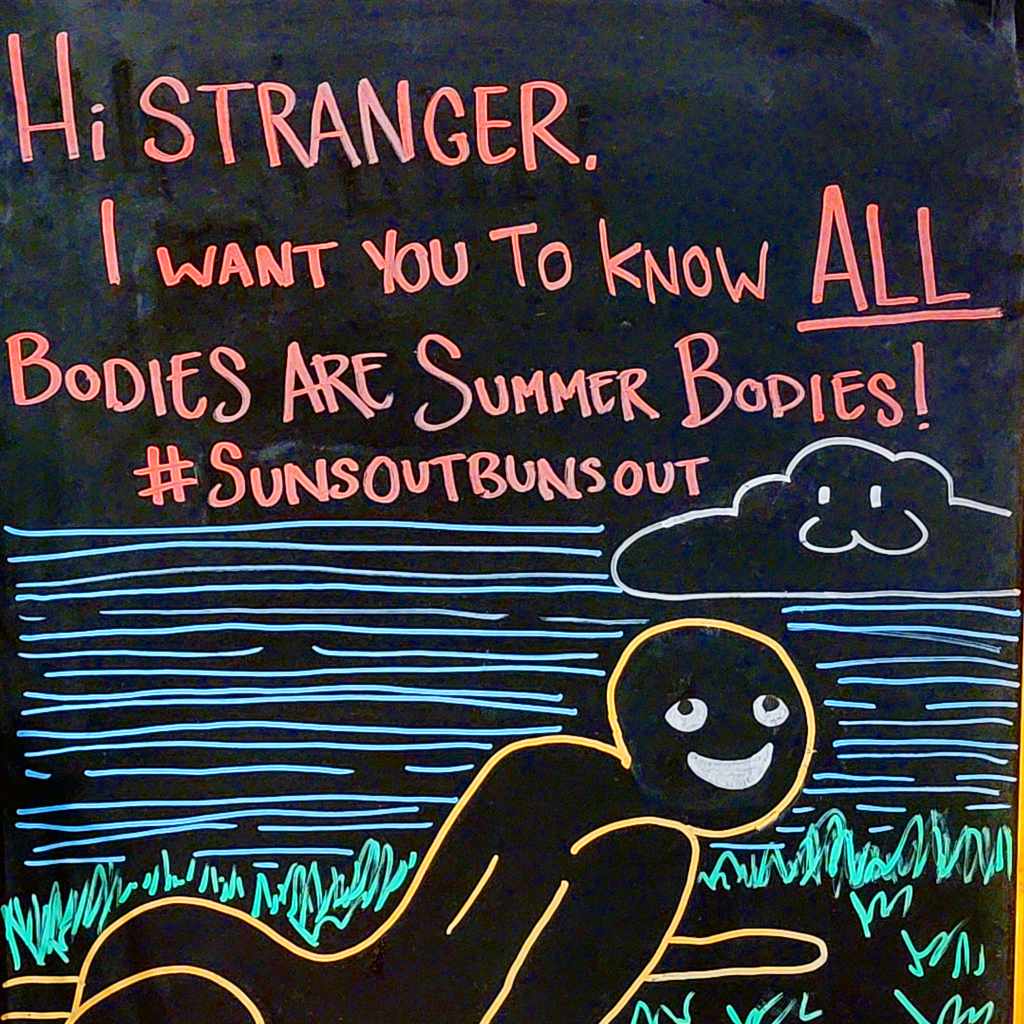 Hi STRANGER.
I WANT YOU TO KNOW ALL
BODIES ARE SUMMER BODIES!
#SUNSOUTBUNSOUT